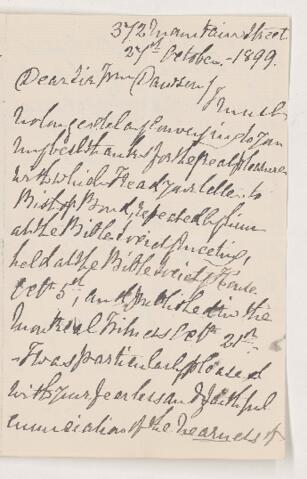 372 Mountain Street
27th October - 1899.
Dear Sir Wm Dawson,
I must
no longer delay conveying to you
my best thanks for the great pleasure
with which I read your letter to
Bishop Bond, repeated by him
at the Bible Society meeting,
held at the Bible Society House
Octr 5th, and published in the
Montreal Witness Octr 21st.
I was particularly pleased
with your fearless and faithful
enunciation of the nearness of